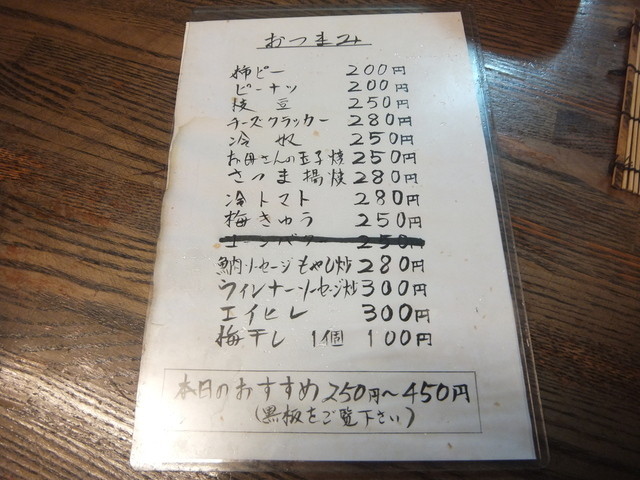 おつまみ
柿ピー 200円
ピーナッツ 200円
枝豆 250円
チーズクラッカー 280円
冷奴 250円
お母さんの玉子焼 250円
さつま揚焼 280円
冷トマト 280円
梅きゅう 250円
コーンバター 250円
魚肉ソーセージもやし炒 280円
ウィンナーソーセージ炒 300円
エイヒレ 300円
梅干し 1個 100円
本日のおすすめ250円〜450円
(黒板をご覧下さい)